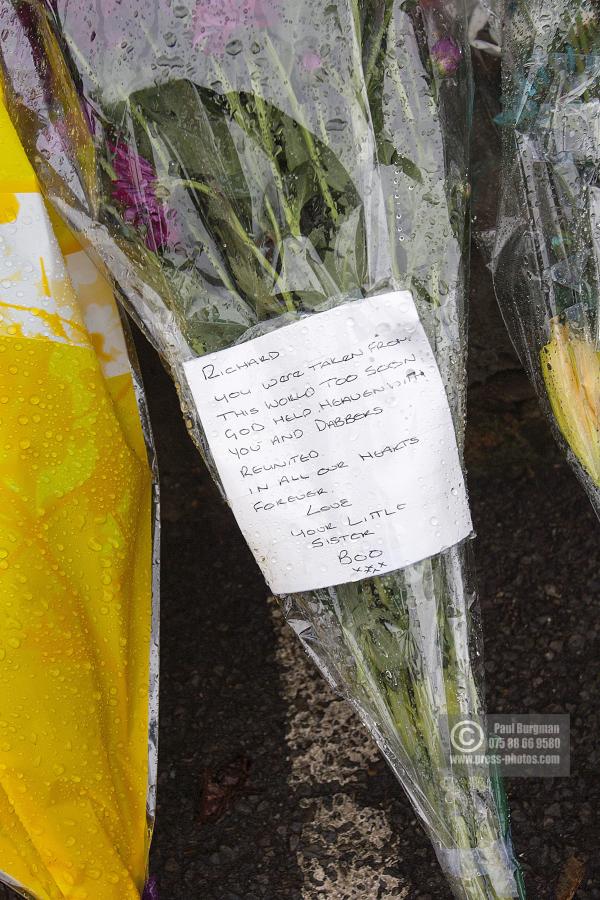 RICHARD
YOU WERE TAKEN FROM
THIS WORLD TOO SOON
GOD HELP HEAVEN WITH
YOU AND DABBERS
REUNITED.
IN ALL OUR HEARTS
FOREVER.
LOVE
YOUR LITTLE
SISTER
BOO
xxx
© Paul Burgman
075 88 66 9580
www.press-photos.com